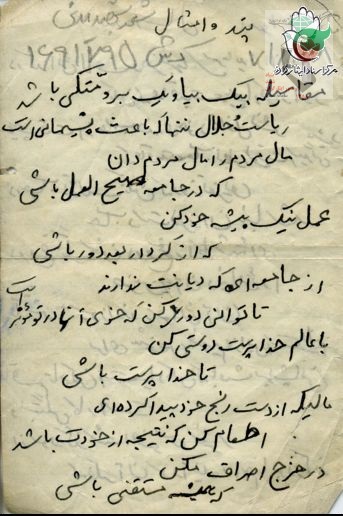 پند و امثال
مقامیکه بیک بیا و یک برو متکی باشد
ریاست حلال ننما که باعث پشیمانی است
مال مردم را مال مردم دان
که در جامعه صحیح العمل باشی
عمل نیک پیشه خود کن
که از کردار بعد دور باشی
از جامعه ای که دیانت ندارند
تا توانی دوری کن که خوی آنها در تو مؤثر است
با عالم خدا پرست دوستی کن
تا خدا پرست باشی
مالیکه از دست رنج خود پیدا کرده ای
اطعام کن که نتیجه از خودت باشد
در خرج اصراف مکن
که همیشه مستغنی باشی
مرکز اسناد ایثارگران